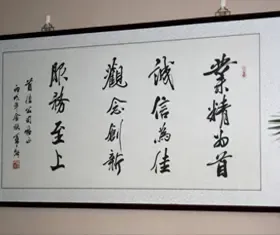 業精為首
誠信為佳
觀念創新
服務至上